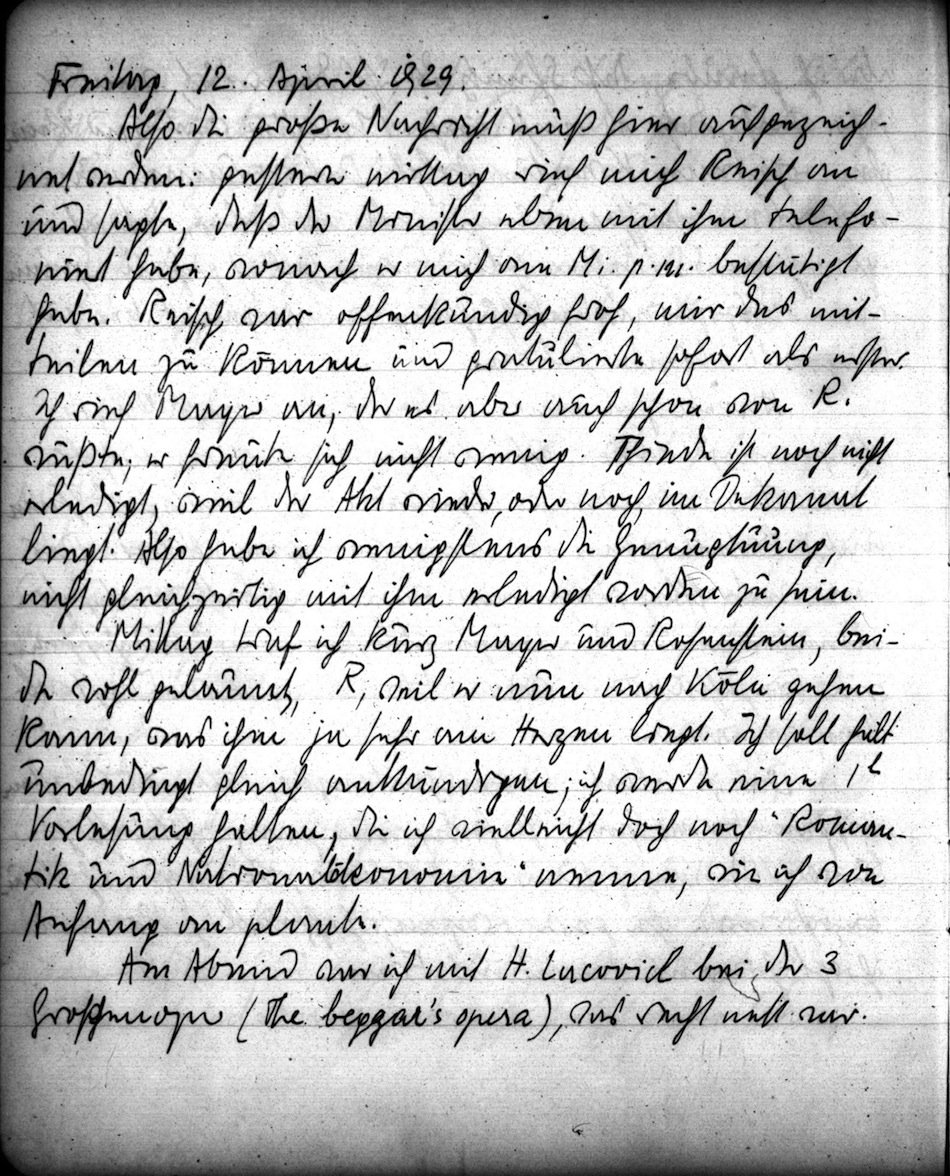 Freitag, 12. April 1929.
Also die große Nachricht muß hier aufgezeich-
net werden: gestern mittag rief mich Reisch an
und sagte, daß der Minister eben mit ihm telefo-
niert habe, wonach er mich am Mi. p.m. bestätigt
habe. Reisch war offenkündig froh, mir das mit-
teilen zu können und gratulierte sofort als erster.
Ich rief Mayer an, der es aber auch schon von R.
wußte; er freute sich nicht wenig. Thinde ist noch nicht
erledigt, weil der Akt wieder, oder noch, im Dekanat
liegt. Also habe ich wenigstens die Genugtuung,
nicht gleichzeitig mit ihm erledigt worden zu sein.
Mittag traf ich kurz Mayer und Rosenstein, bei-
de wohl gelaunt, R, weil er nun nach Köln gehen
kann, was ihm ja sehr am Herzen liegt. Ich soll halt
unbedingt gleich ankündigen; ich werde eine 1h
Vorlesung halten, die ich vielleicht doch noch "Roman-
tik und Nationalökonomie" nenne, wie ich von
Anfang an plante.
Am Abend war ich mit H. bei der 3
Groschenoper (The beggar's opera), was recht nett war.